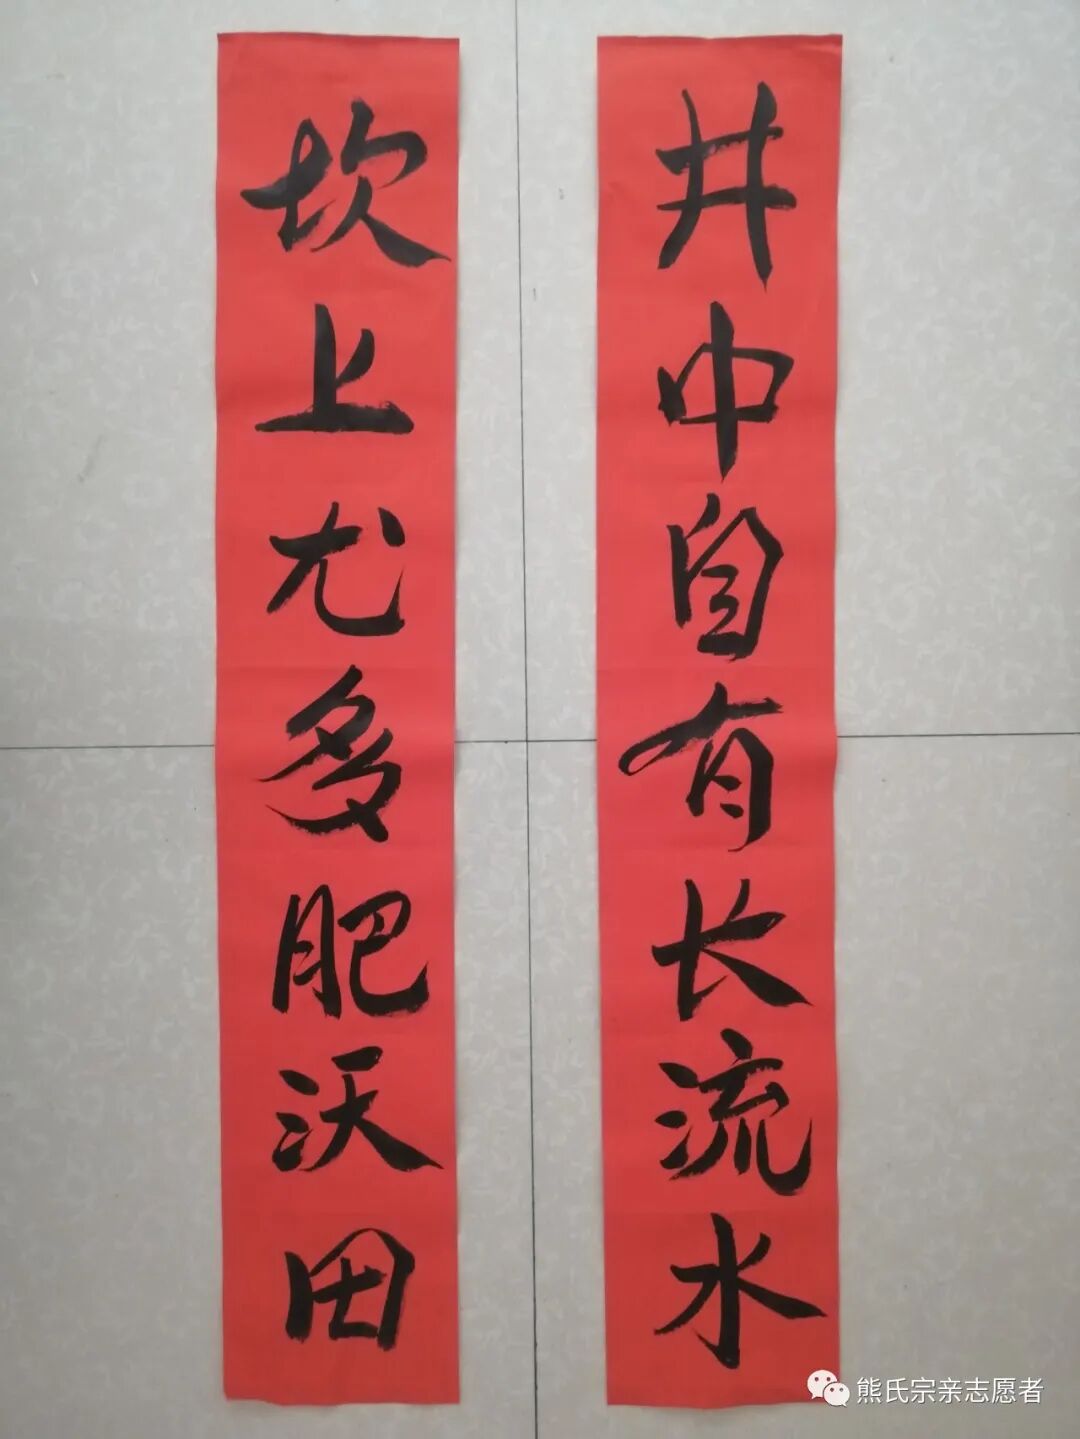 井中自有长流水
坎上尤多肥沃田
熊氏宗亲志愿者